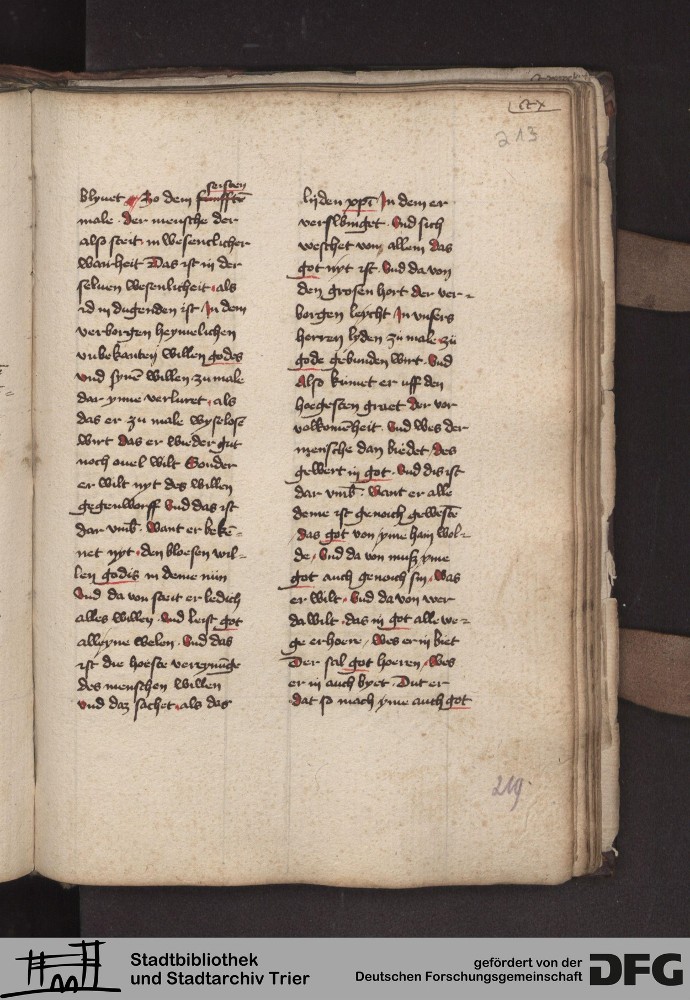 ccx
213
blyuet Zo dem funfftē seisten
male · der mensche der
also steit in wesenclicher
warheit Das ist in der
seluen wesenlicheit · als
id in dugenden ist · In dem
verborgen heymelichen
vnbekanten willen godes
vnd synē willen zu male
dar ynne verluret · als
das er zu male wyselose
wirt das er wieder gut
noch ouel wilt Sonder
er wilt nyt des willen
gegenworff Vnd das ist
dar vmb · Want er bekē-
net nyt · den bloesen wil-
len godis in deme nün
Vnd da von steit er ledich
alles willen · Vnd leist got
alleyne welen · Vnd das
ist die hoeste vereynūge
des menschen willen
vnd daz sachet · als das
lijden xp̄i In dem er
verslonget · Vnd sich
weschet vom allem das
got nyt ist · Vnd da von
den grosen hort der ver-
borgen leycht · In vnsers
herren lyden zu male zü
gode gebunden wirt · Vnd
Also kūmet er uff den
hoegesten graet der vor
volkomēheit · Vnd wes der
mensche dan biedet / des
gewert in got · Vnd dis ist
dar vmb · Want er alle
deme ist genoich geweste
das got von yme hain wol-
de / Vnd da von musz yme
got auch genoich sin / Was
er wilt · Vnd da von wer
da wilt · das in got alle we-
ge erhoere · Wes er in biet
Der sal got hoeren / Wes
er in auch byet · Dut er
dat so mach yme auch got
219
Stadtbibliothek
und Stadtarchiv Trier
gefördert von der
Deutschen Forschungsgemeinschaft
DFG